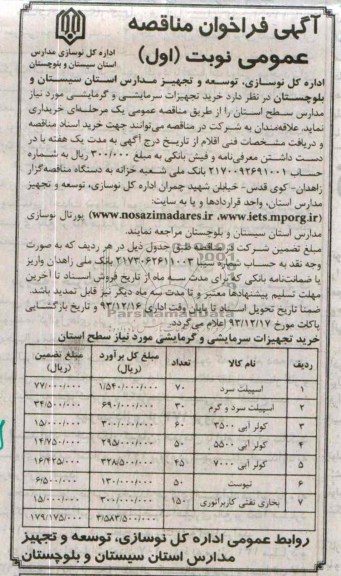 آگهی فراخوان مناقصه
عمومی نوبت (اول)
اداره کل نوسازی مدارس
استان سیستان و بلوچستان
اداره کل نوسازی، توسعه و تجهیز مدارس استان سیستان و
بلوچستان در نظر دارد خرید تجهیزات سرمایشی و گرمایشی مورد نیاز
مدارس سطح استان را از طریق مناقصه عمومی یک مرحله‌ای خریداری
نماید. علاقه‌مندان به شرکت در مناقصه می‌توانند جهت خرید اسناد مناقصه
و دریافت مشخصات فنی اقلام از تاریخ درج آگهی به مدت یک هفته با در
دست داشتن معرفی‌نامه و فیش بانکی به مبلغ ۳۰۰/۰۰۰ ریال به شماره
حساب ۲۱۷۰۰۹۲۶۹۱۰۰۱ بانک ملی شعبه خزانه به دستگاه مناقصه‌گزار
زاهدان- کوی قدس- خیابان شهید چمران اداره کل نوسازی، توسعه و تجهیز
مدارس استان، واحد قراردادها و یا به سایت:
(www.nosazimadares.ir ،www.iets.mporg.ir) پورتال نوسازی
مدارس استان سیستان و بلوچستان مراجعه نمایند.
مبلغ تضمین شرکت در مناقصه طبق جدول ذیل در هر ردیف که به صورت
وجه نقد به حساب شماره ۲۱۷۳۰۶۲۶۱۱۰۰۳ بانک ملی زاهدان واریز
یا ضمانت‌نامه بانکی که برای مدت سه ماه از تاریخ فروش اسناد تا آخرین
مهلت تسلیم پیشنهادها معتبر و تا مدت سه ماه دیگر نیز قابل تمدید باشد.
ضمنا تاریخ تحویل اسناد تا پایان وقت اداری ۹۳/۱۲/۱۶ و تاریخ بازگشایی
پاکات مورخ ۹۳/۱۲/۱۷ اعلام می‌گردد.
خرید تجهیزات سرمایشی و گرمایشی مورد نیاز سطح استان
ردیف نام کالا تعداد مبلغ کل برآورد (ریال) مبلغ تضمین (ریال)
۱ اسپیلت سرد ۷۰ ۱/۵۴۰/۰۰۰/۰۰۰ ۷۷/۰۰۰/۰۰۰
۲ اسپیلت سرد و گرم ۳۰ ۶۹۰/۰۰۰/۰۰۰ ۳۴/۵۰۰/۰۰۰
۳ کولر آبی ۳۵۰۰ ۶۰ ۳۰۰/۰۰۰/۰۰۰ ۱۵/۰۰۰/۰۰۰
۴ کولر آبی ۵۵۰۰ ۵۰ ۲۹۵/۰۰۰/۰۰۰ ۱۴/۷۵۰/۰۰۰
۵ کولر آبی ۷۰۰۰ ۴۵ ۳۲۸/۵۰۰/۰۰۰ ۱۶/۴۲۵/۰۰۰
۶ نیوست ۵۰ ۱۳۰/۰۰۰/۰۰۰ ۶/۵۰۰/۰۰۰
۷ بخاری نفتی کاربراتوری ۱۵۰ ۳۰۰/۰۰۰/۰۰۰ ۱۵/۰۰۰/۰۰۰
۳/۵۸۳/۵۰۰/۰۰۰ ۱۷۹/۱۷۵/۰۰۰
روابط عمومی اداره کل نوسازی، توسعه و تجهیز
مدارس استان سیستان و بلوچستان